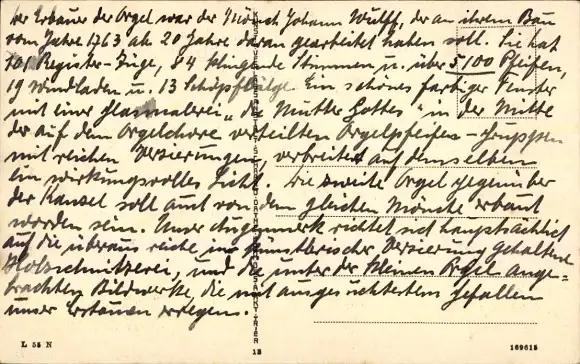 Der Erbauer der Orgel war der Mönch Johann Wulff, der an ihrem Bau
vom Jahre 1763 ab 20 Jahre daran gearbeitet haben soll. Sie hat
101 Register-Züge, 84 klingende Stimmen u. über 5100 Pfeifen,
19 Windladen u. 13 Schöpfbälge. Ein schönes farbiger Fenster
mit einer Glasmalerei „die Mutter Gottes" in der Mitte
der auf dem Orgelchore verteilten Orgelpfeifen-Gruppen
mit reichen Verzierungen, verbreitet auf denselben
ein wirkungsvolles Licht. Die zweite Orgel gegenüber
der Kanzel soll auch von dem gleichen Mönche erbaut
worden sein. Unser Augenmerk richtet sich hauptsächlich
auf die überaus reiche in künstlerischer Verzierung gehaltene
Holzschnitzerei, und die unter der kleinen Orgel ange-
brachten Bildwerke, die mit ausgesuchtestem Gefallen
unser Erstaunen erregen.
L 55 N
13
169615